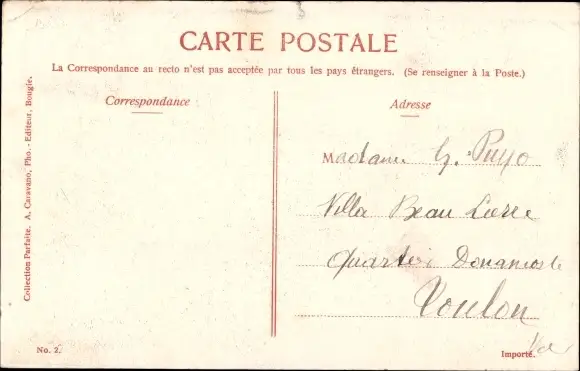 CARTE POSTALE
La Correspondance au recto n'est pas acceptée par tous les pays étrangers. (Se renseigner à la Poste.)
Correspondance
Adresse
Madame G. Puyo
Villa Beau
Quartier
Toulon
Collection Parfaite. A. Caravano, Pho.-Editeur, Bougie.
No. 2.
Importé.